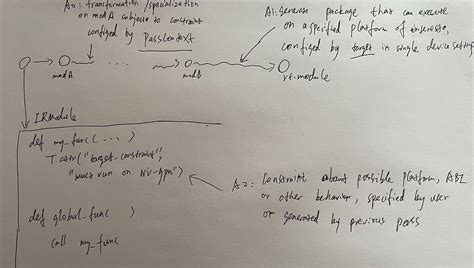 A0: transformation/specialization
on modA subjects to constraint
configed by PassContext
A1: generate package that can execute
on a specified platform of interests,
configed by target in single device setting
modA
modB
rt.module
IRModule
def my_func( ... )
T.attr("target_constraint",
"must run on NV-gpu")
A2: Constraint about possible platform, ABI
or other behavior, specified by user
or generated by previous pass
def global_func )
call my_func